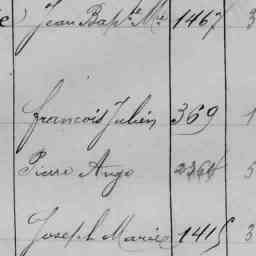 Jean Bapte Mie 1467 3
francois Julien 369 1
Pierre Ange 5
Joseph Marie 1415 3